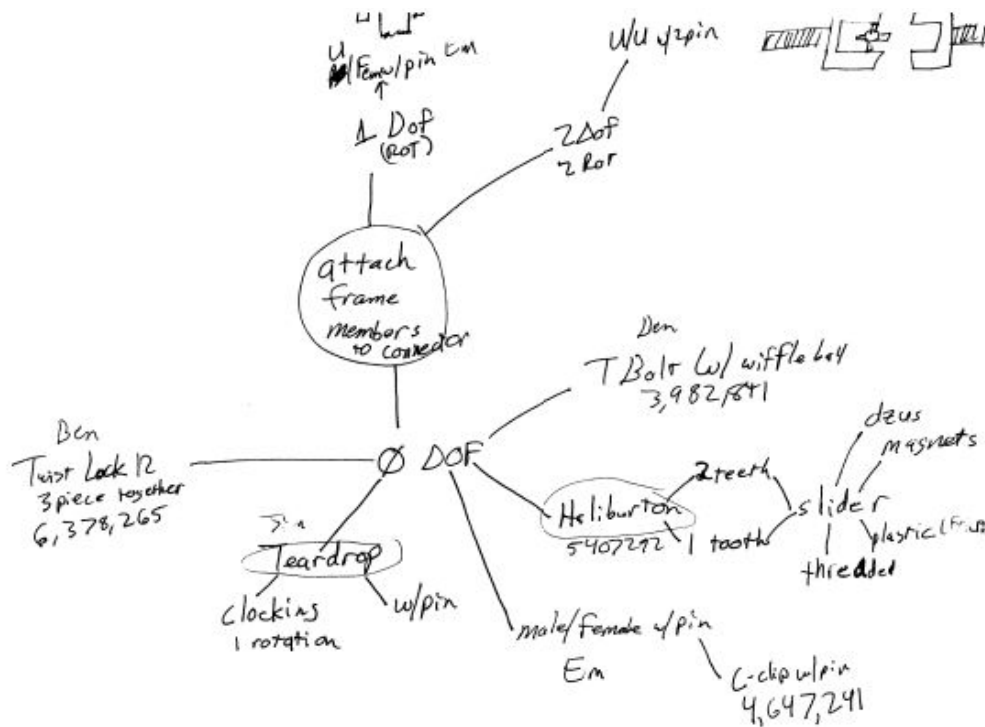 U
w/pin Em
1 Dof
(ROT)
U/U w/2pin
2 Dof
2 Rot
attach
frame
members
to connector
Ø DOF
Ben
T Bolt w/ wiffle ball
Ben
Twist Lock
3 piece together
6,378,265
Teardrop
clocking
1 rotation
w/pin
Heliburton
5407292
2 teeth
1 tooth
slider
dzus
magnets
plastic
threaded
male/female w/pin
Em
C-clip w/pin
4,647,241